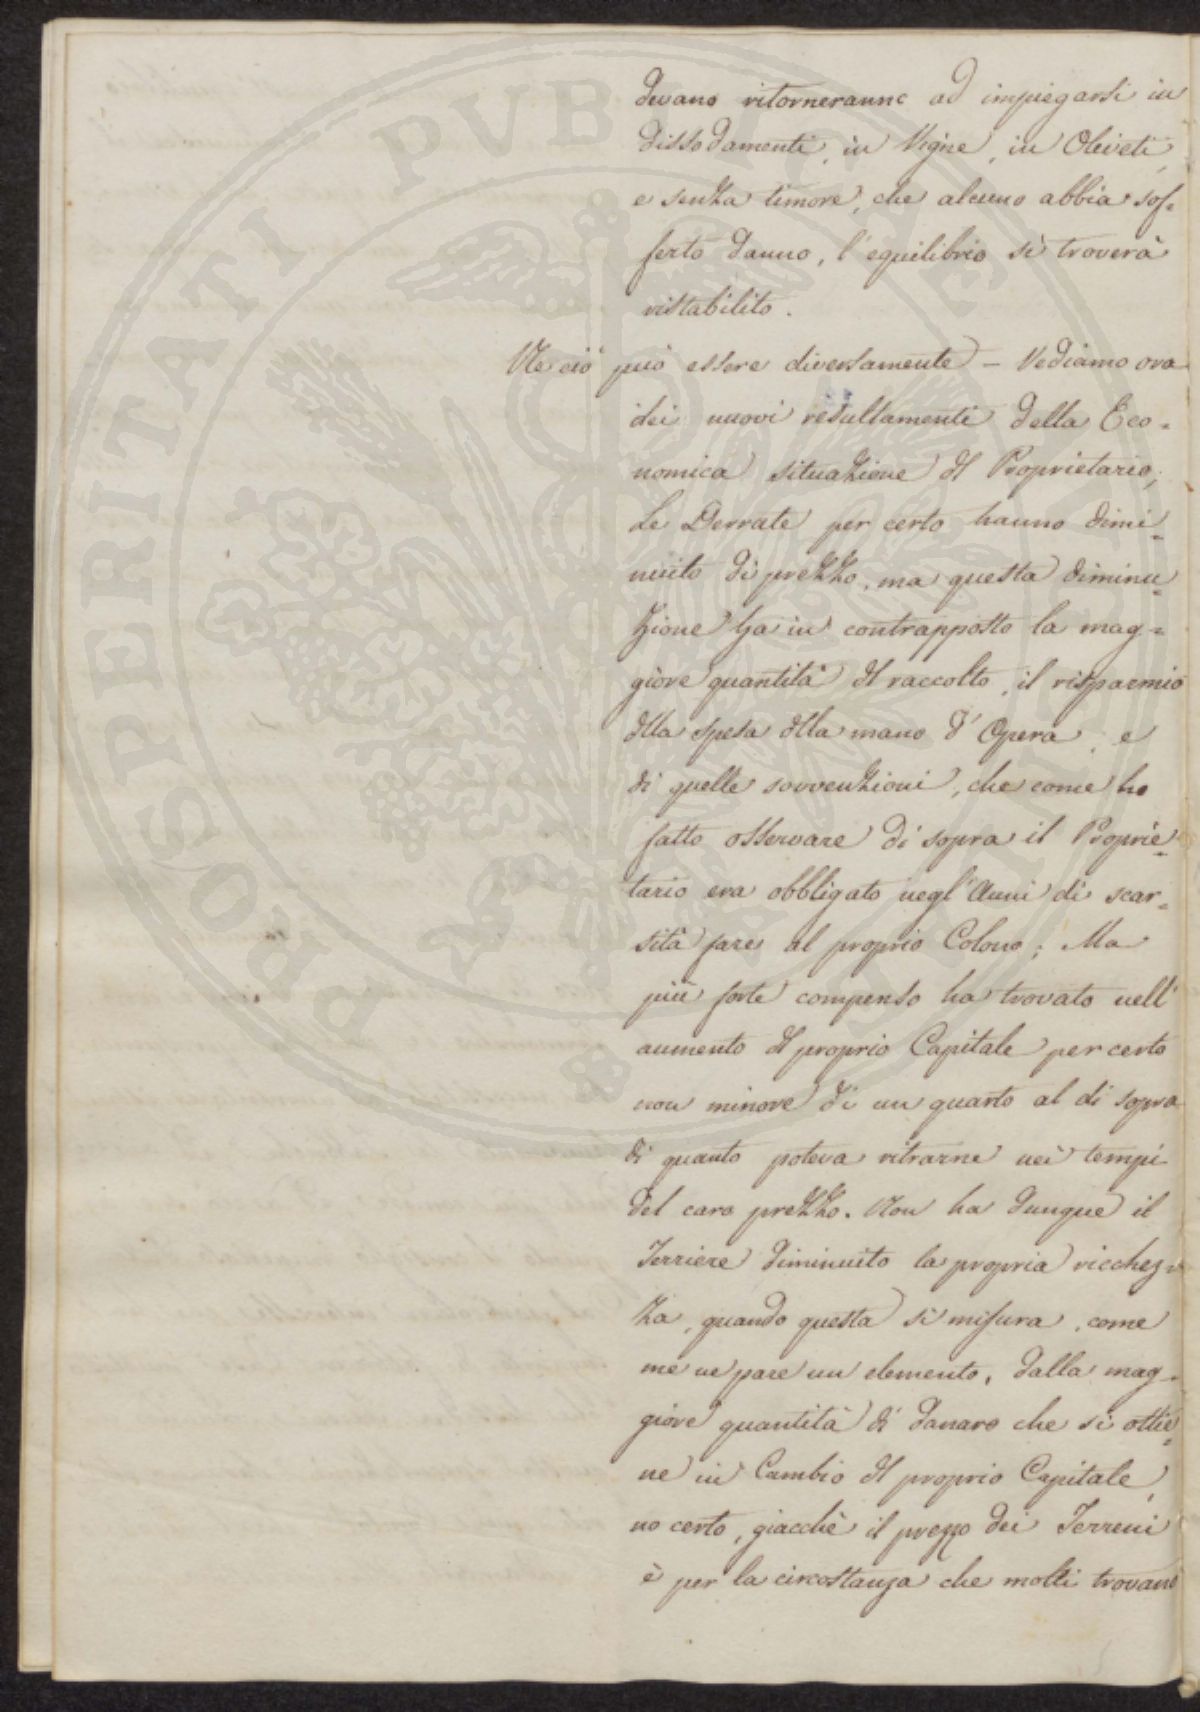 devano ritorneranno ad impiegarsi in
dissodamenti, in Vigne, in Oliveti,
e senza timore, che alcuno abbia sof-
ferto danno, l'equilibrio si troverà
ristabilito.
Ne ciò può essere diversamente - Vediamo ora
dei nuovi resultamenti della Eco-
nomica situazione del Proprietario;
Le Derrate per certo hanno dimi-
nuito di prezzo, ma questa diminu-
zione ha in contrapposto la mag-
giore quantità del raccolto, il risparmio
della spesa della mano d'Opera, e
di quelle sovvenzioni, che come ho
fatto osservare di sopra il Proprie-
tario era obbligato negl'Anni di scar-
sità fare al proprio Colono; Ma
più forte compenso ha trovato nell'
aumento del proprio Capitale per certo
non minore di un quarto al di sopra
di quanto poteva ritrarne nei tempi
del caro prezzo. Non ha dunque il
Terriere diminuito la propria ricchez-
za, quando questa si misura, come
me ne pare un elemento, dalla mag-
giore quantità di danaro che si ottie-
ne in Cambio del proprio Capitale,
no certo, giacchè il prezzo dei Terreni
è per la circostanza che molti trovano
PROSPERITATI PVBLICAE